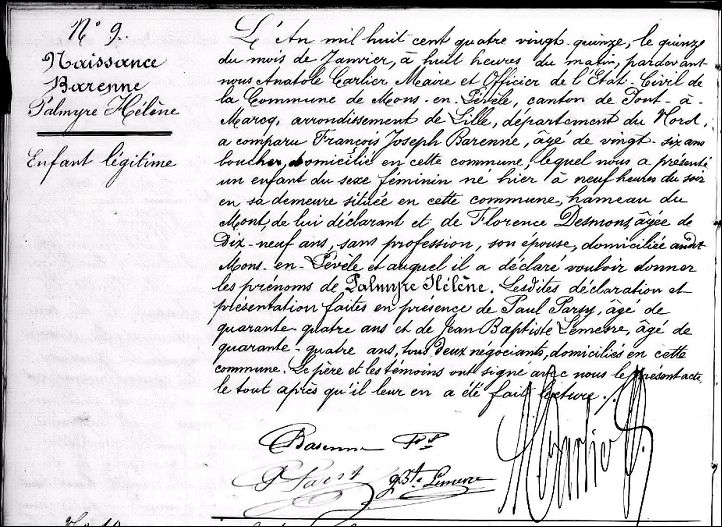 N° 9.
Naissance
Barenne
Palmyre Hélène
Enfant légitime
L'An mil huit cent quatre vingt-quinze, le quinze
du mois de Janvier, à huit heures du matin, pardevant
nous Anatole Carlier Maire et Officier de l'Etat-Civil de
la Commune de Mons-en-Pévèle, canton de Pont-à-
Marcq, arrondissement de Lille, département du Nord,
a comparu François Joseph Barenne, âgé de vingt-six ans
boucher, domicilié en cette commune, lequel nous a présenté
un enfant du sexe féminin né hier à neuf heures du soir
en sa demeure située en cette commune, hameau du
Mont, de lui déclarant et de Florence Desmons, âgée de
Dix-neuf ans, sans profession, son épouse, domiciliée audit
Mons-en-Pévèle et auquel il a déclaré vouloir donner
les prénoms de Palmyre Hélène. Lesdites déclaration et
présentation faites en présence de Paul Parsy, âgé de
quarante-quatre ans et de Jean Baptiste Lemerre, âgé de
quarante-quatre ans, tous deux négociants, domiciliés en cette
commune. Le père et les témoins ont signé avec nous le présent acte
le tout après qu'il leur en a été fait lecture.
Barenne